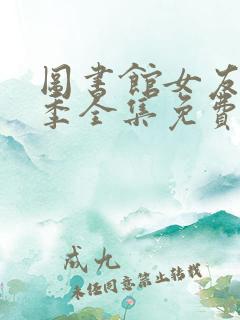 圖書館女友
季全集免費
成九
未经同意禁止转载